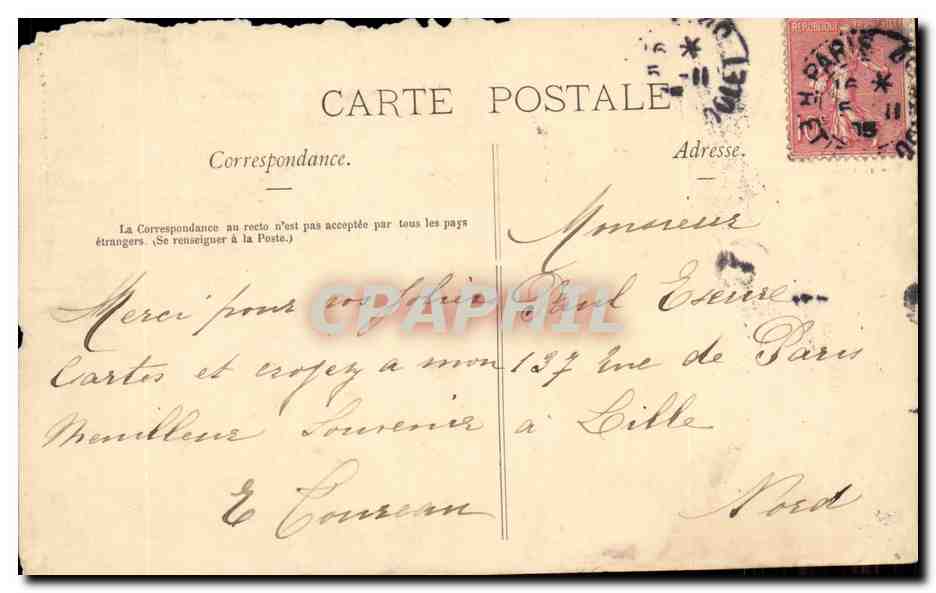 CARTE POSTALE
Correspondance.
La Correspondance au recto n'est pas acceptée par tous les pays
étrangers. (Se renseigner à la Poste.)
Merci pour vos jolies
Cartes et croyez a mon
Meuilleur Souvenir
E
Adresse.
Monsieur
Paul
137 rue de Paris
à Lille
Nord
REPUBLIQUE
PARIS
CPAPHIL